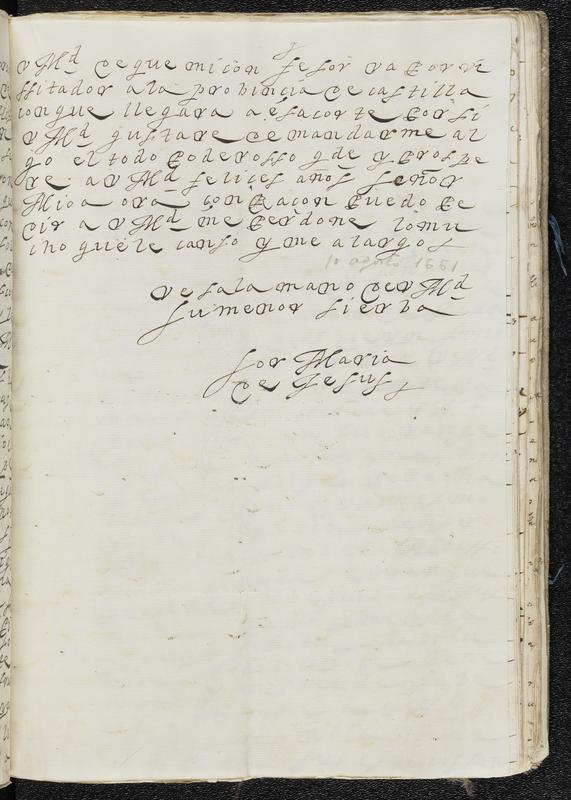 v Md de que mi con fesor va por vi
ssitador a la probincia de castilla
con que llegara a esa corte por si
v Md gustare de mandarme al
go el todo poderosso gde y prospe
re a v Md felices años señor
Mio a ora con Racon puedo de
cir a v Md me perdone lo mu
cho que le canso y me alargo
10 agosto 1651
vesa la mano de v Md
su menor sierba
sor Maria
de Jesus